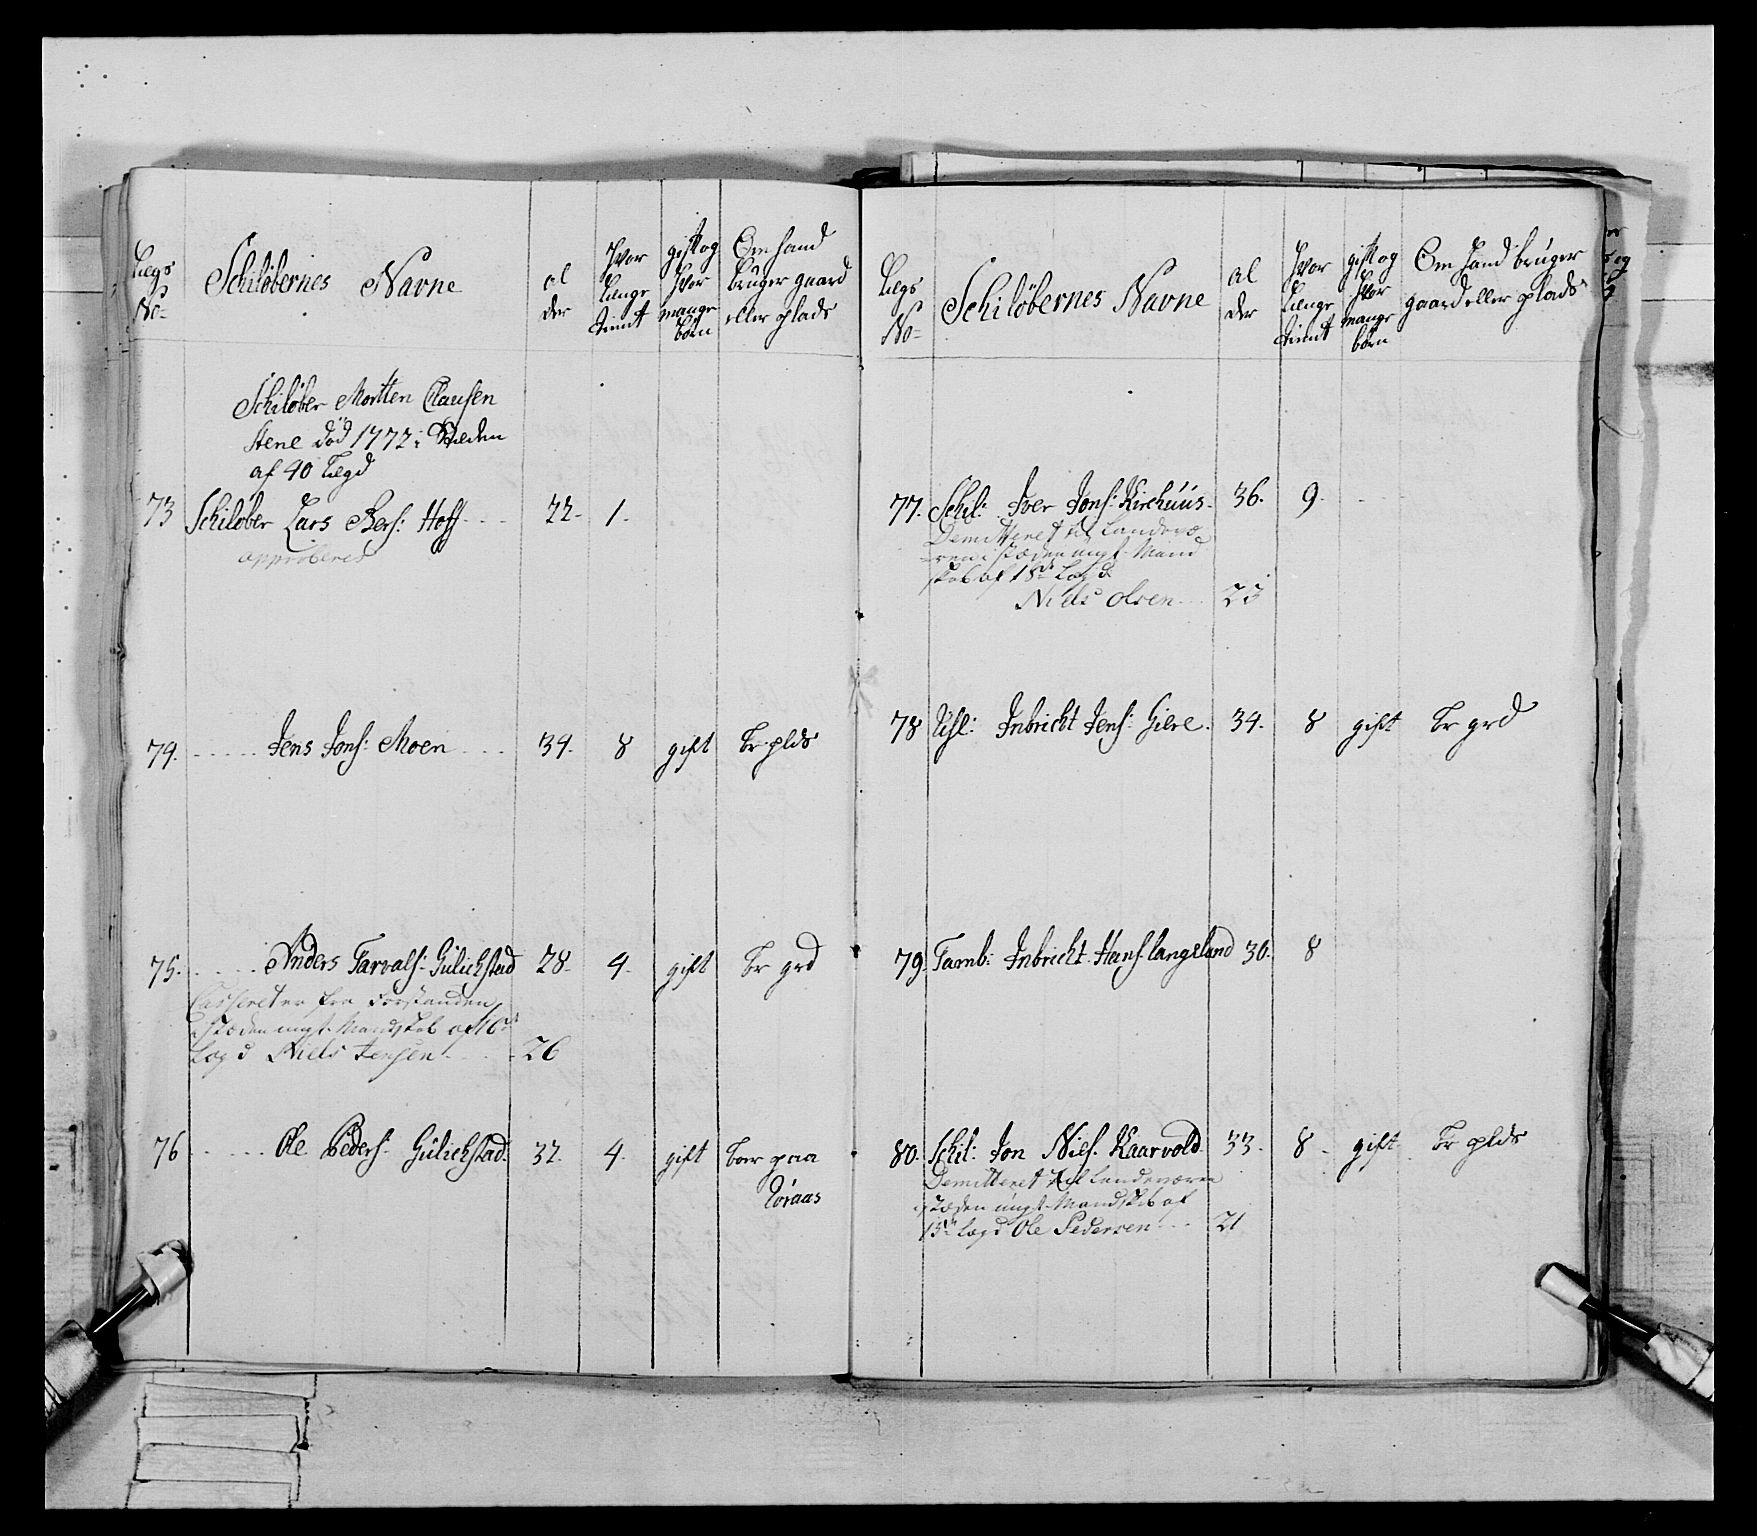 Lægs
No
Schilöbernes Navne
al
der
Hvor
længe
tient
gift og
Hvor
mange
börn
Om hand
bruger gaard
eller plads
Schilöber Mortten Clausen
Stene död 1772 i Steden
af 40 Lægd
73 Schilöber Lars Bers: Hoff 22 1
approberes
74. Jens Jons: Moen 34. 8 gift br plds
75. Anders Tarvals: Gulichstad 28 4. gift br grd
Casseret fra Forstanden
i stæden ungt Mandskab af 10de
Lægd Niels Jensen 26
76 Ole Peders: Gulichstad 32. 4. gift boer paa
Loraas
Lægs
No
Schilöbernes Navne
al
der
Hvor
længe
tient
gift og
Hvor
mange
börn
Om Hand bruger
gaard eller plads
77. Schl: Iver Jons: Kirchuus 36. 9
Demitteret til Landevæ-
ren i stæden ungt Mand
skab af 18de Lægd
Niels Olsen 23
78 Ufl: Inbricht Jens: Giere. 34. 8 gift br grd
79. Tamb: Inbricht Hans: langeland 30. 8
80. Schil: Jon Niels: Kaarvold 33. 8 gift br plds
Demitteret til Landeværn
i stæden ungt Mandskab af
15de Lægd Ole Pedersen 21